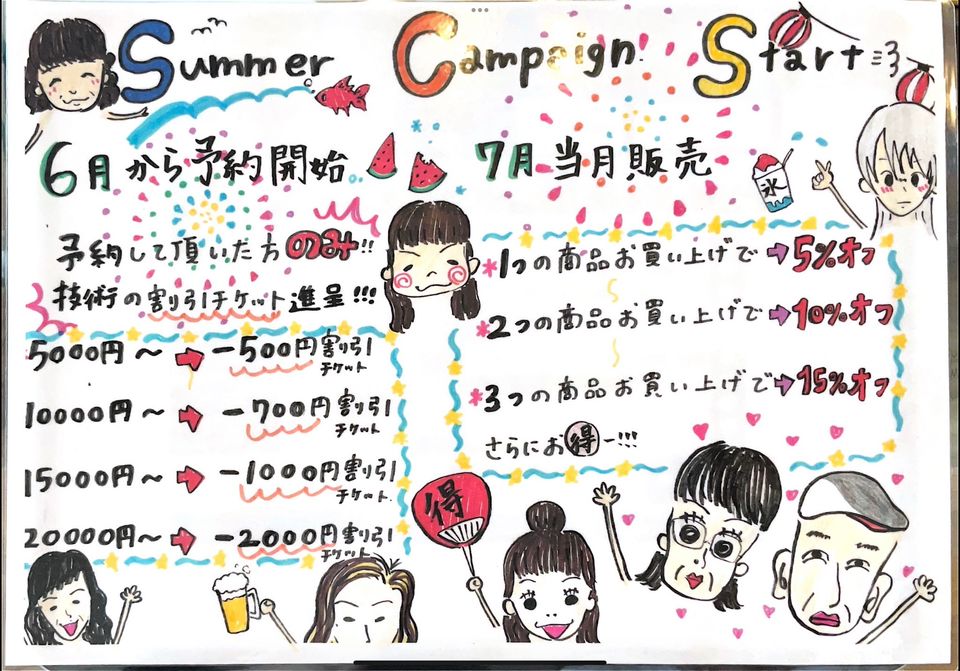 Summer Campaign Start
6月から予約開始
予約して頂いた方のみ!!
技術の割り引チケット進呈!!!
5000円〜 → -500円割り引チケット
10000円〜 → -700円割り引チケット
15000円〜 → -1000円割り引チケット
20000円〜 → -2000円割り引チケット
7月当月販売
氷
*1つの商品お買い上げで→5%オフ
*2つの商品お買い上げで→10%オフ
*3つの商品お買い上げで→15%オフ
さらにお得ー!!!
得